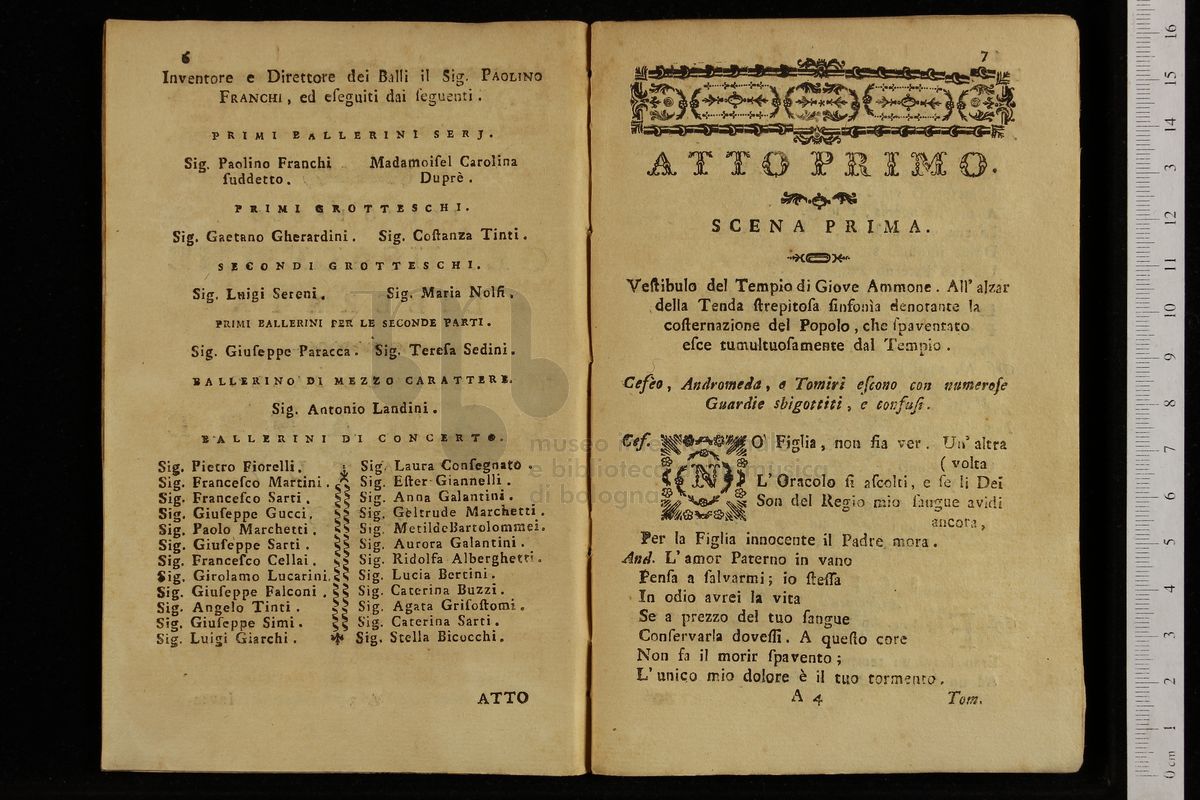 6
Inventore e Direttore dei Balli il Sig. PAOLINO
FRANCHI, ed eſeguiti dai ſeguenti.
PRIMI BALLERINI SERJ.
Sig. Paolino Franchi Madamoiſel Carolina
ſuddetto. Duprè.
PRIMI GROTTESCHI.
Sig. Gaetano Gherardini. Sig. Coſtanza Tinti.
SECONDI GROTTESCHI.
Sig. Luigi Sereni. Sig. Maria Nolfi.
PRIMI BALLERINI PER LE SECONDE PARTI.
Sig. Giuſeppe Paracca. Sig. Tereſa Sedini.
BALLERINO DI MEZZO CARATTERE.
Sig. Antonio Landini.
BALLERINI DI CONCERTO.
Sig. Pietro Fiorelli. Sig. Laura Conſegnato.
Sig. Franceſco Martini. Sig. Eſter Giannelli.
Sig. Franceſco Sarti. Sig. Anna Galantini.
Sig. Giuſeppe Gucci. Sig. Geltrude Marchetti.
Sig. Paolo Marchetti. Sig. Metilde Bartolommei.
Sig. Giuſeppe Sarti. Sig. Aurora Galantini.
Sig. Franceſco Cellai. Sig. Ridolfa Alberghetti.
Sig. Girolamo Lucarini. Sig. Lucia Bertini.
Sig. Giuſeppe Falconi. Sig. Caterina Buzzi.
Sig. Angelo Tinti. Sig. Agata Griſoſtomi.
Sig. Giuſeppe Simi. Sig. Caterina Sarti.
Sig. Luigi Giarchi. Sig. Stella Bicocchi.
ATTO
7
ATTO PRIMO.
SCENA PRIMA.
Veſtibulo del Tempio di Giove Ammone. All' alzar
della Tenda ſtrepitoſa ſinfonìa denotante la
coſternazione del Popolo, che ſpaventato
eſce tumultuoſamente dal Tempio.
Cefèo, Andromeda, e Tomiri eſcono con numeroſe
Guardie sbigottiti, e confuſi.
Cef. NO' Figlia, non ſia ver. Un' altra
( volta
L' Oracolo ſi aſcolti, e ſe li Dei
Son del Regio mio ſangue avidi
ancora,
Per la Figlia innocente il Padre mora.
And. L' amor Paterno in vano
Penſa a ſalvarmi; io ſteſſa
In odio avrei la vita
Se a prezzo del tuo ſangue
Conſervarla doveſſi. A queſto core
Non fa il morir ſpavento;
L' unico mio dolore è il tuo tormento.
A 4 Tom.
museo
e biblioteca musica
di bologna
0 cm 1 2 3 4 5 6 7 8 9 10 11 12 13 14 15 16